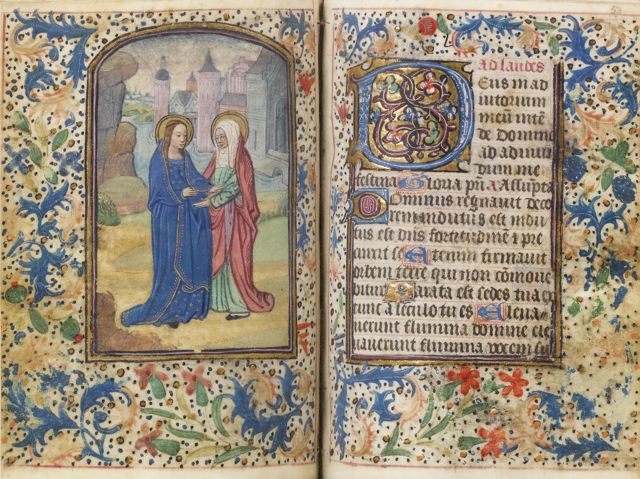 ad laudes
Deus in ad
iutorium
meū intē
de Domine
ad adiuuā
dum me
festina Gloria pr̄i Assūpta
Dominus regnauit deco
rem indutus est indu
tus est dn̄s fortitudinē ⁊ pre
cinxit se Etenim firmauit
orbem terre qui non cōmoue
bitur Parata est sedes tua ex
tunc a seculo tu es Eleua
uerunt flumina domine ele
uauerunt flumina vocem su